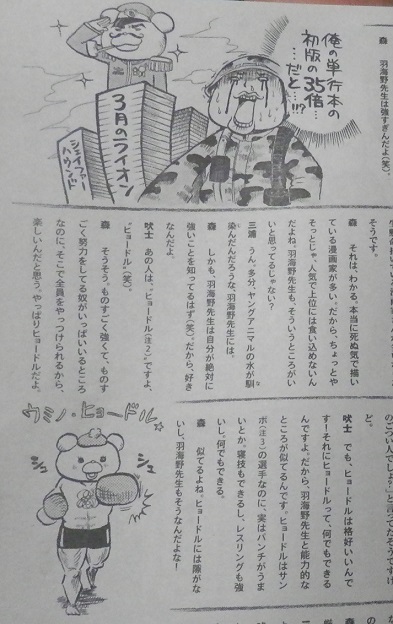 森　羽海野先生は強すぎんだよ（笑）。
俺の単行本の
初版の35倍…
…だと…!!?
3月のライオン
シェイファー
ハウンド
そうです。
森　それは、わかる。本当に死ぬ気で描い
ている漫画家が多い。だから、ちょっとや
そっとじゃ、人気で上位には食い込めないん
だよね。羽海野先生も、そういうところがい
いと思ってるじゃない？
三浦　うん。多分、ヤングアニマルの水が馴
染んだんだろうな、羽海野先生には。
森　しかも、羽海野先生は自分が絶対に
強いことを知ってるはず（笑）。だから、好き
なんだよ。
吠士　あの人は、“ヒョードル（注2）”ですよ、
“ヒョードル”（笑）。
森　そうそう。ものすごく強くて、ものす
ごく努力をしてる奴がいっぱいいるところ
なのに、そこで全員をやっつけられるから、
楽しいんだと思う。やっぱりヒョードルだよ。
ど。
吠士　でも、ヒョードルは格好いいんで
す！それにヒョードルって、何でもできる
んですよ。だから、羽海野先生と能力的な
ところが似てるんです。ヒョードルはサン
ボ（注3）の選手なのに、実はパンチがうま
いとか。寝技もできるし、レスリングも強
いし。何でもできる。
森　似てるよね。ヒョードルには隙がな
いし、羽海野先生もそうなんだよな！
ウミノ・ヒョードル
シュ
シュ